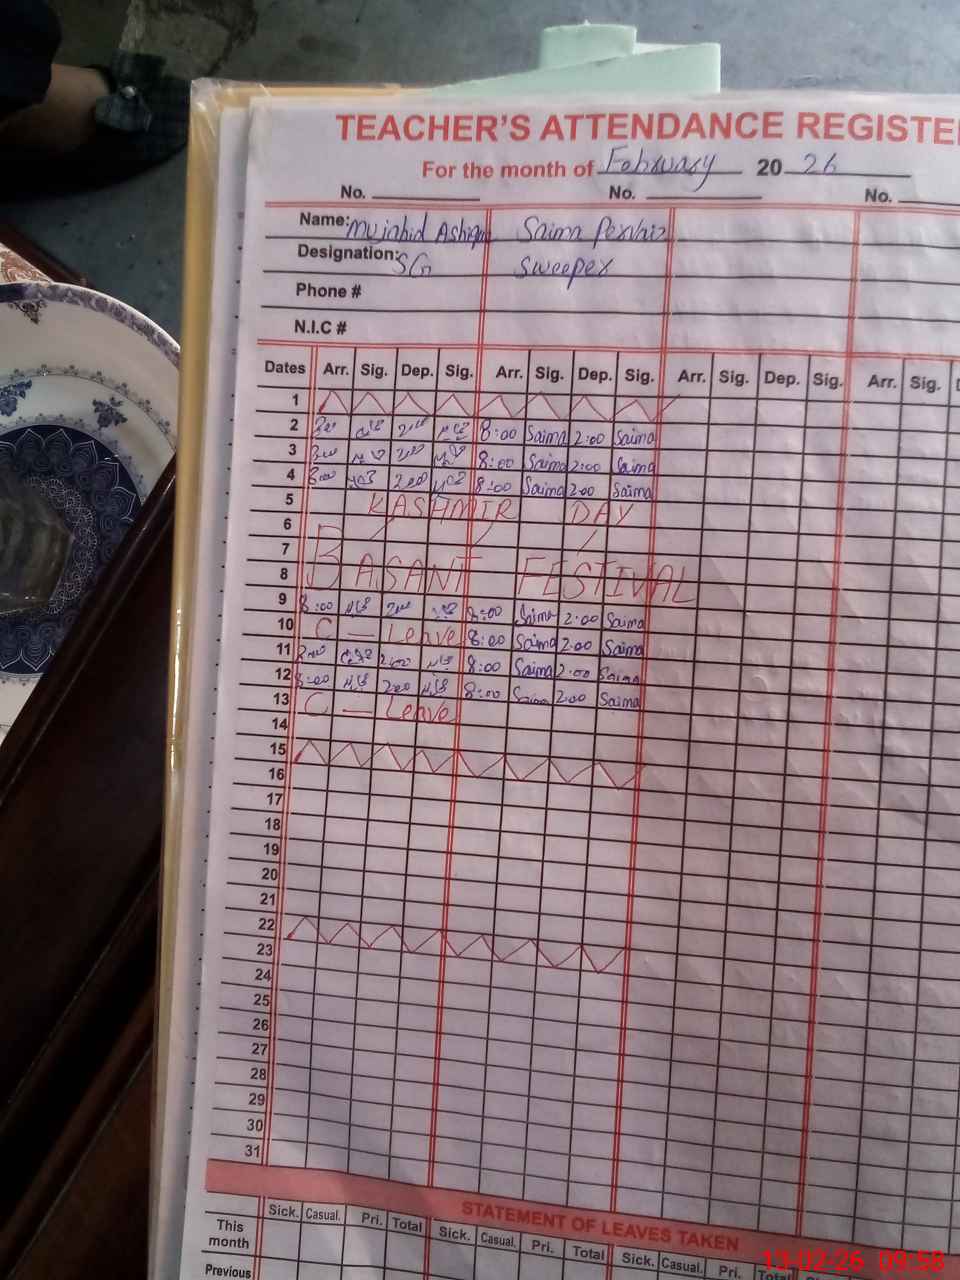 TEACHER'S ATTENDANCE REGISTE
For the month of February 20 26
No. No. No.
Name: Mujahid Ashiq Saima Pervaiz
Designation: SG Sweeper
Phone #
N.I.C #
Dates Arr. Sig. Dep. Sig. Arr. Sig. Dep. Sig. Arr. Sig. Dep. Sig. Arr. Sig. D
1
2 2:00 8:00 Saima 2:00 Saima
3 8:00 2:00 8:00 Saima 2:00 Saima
4 8:00 200 8:00 Saima 200 Saima
5 KASHMIR DAY
6
7
8 BASANT FESTIVAL
9 8:00 8:00 Saima 2:00 Saima
10 C — Leave 8:00 Saima 2:00 Saima
11 2:00 8:00 Saima 2:00 Saima
12 8:00 2:00 8:00 Saima 2:00 Saima
13 C — Leave
14
15
16
17
18
19
20
21
22
23
24
25
26
27
28
29
30
31
STATEMENT OF LEAVES TAKEN
Sick. Casual. Pri. Total Sick. Casual. Pri. Total Sick. Casual. Pri. Total
This month
Previous
13-02-26 09:58